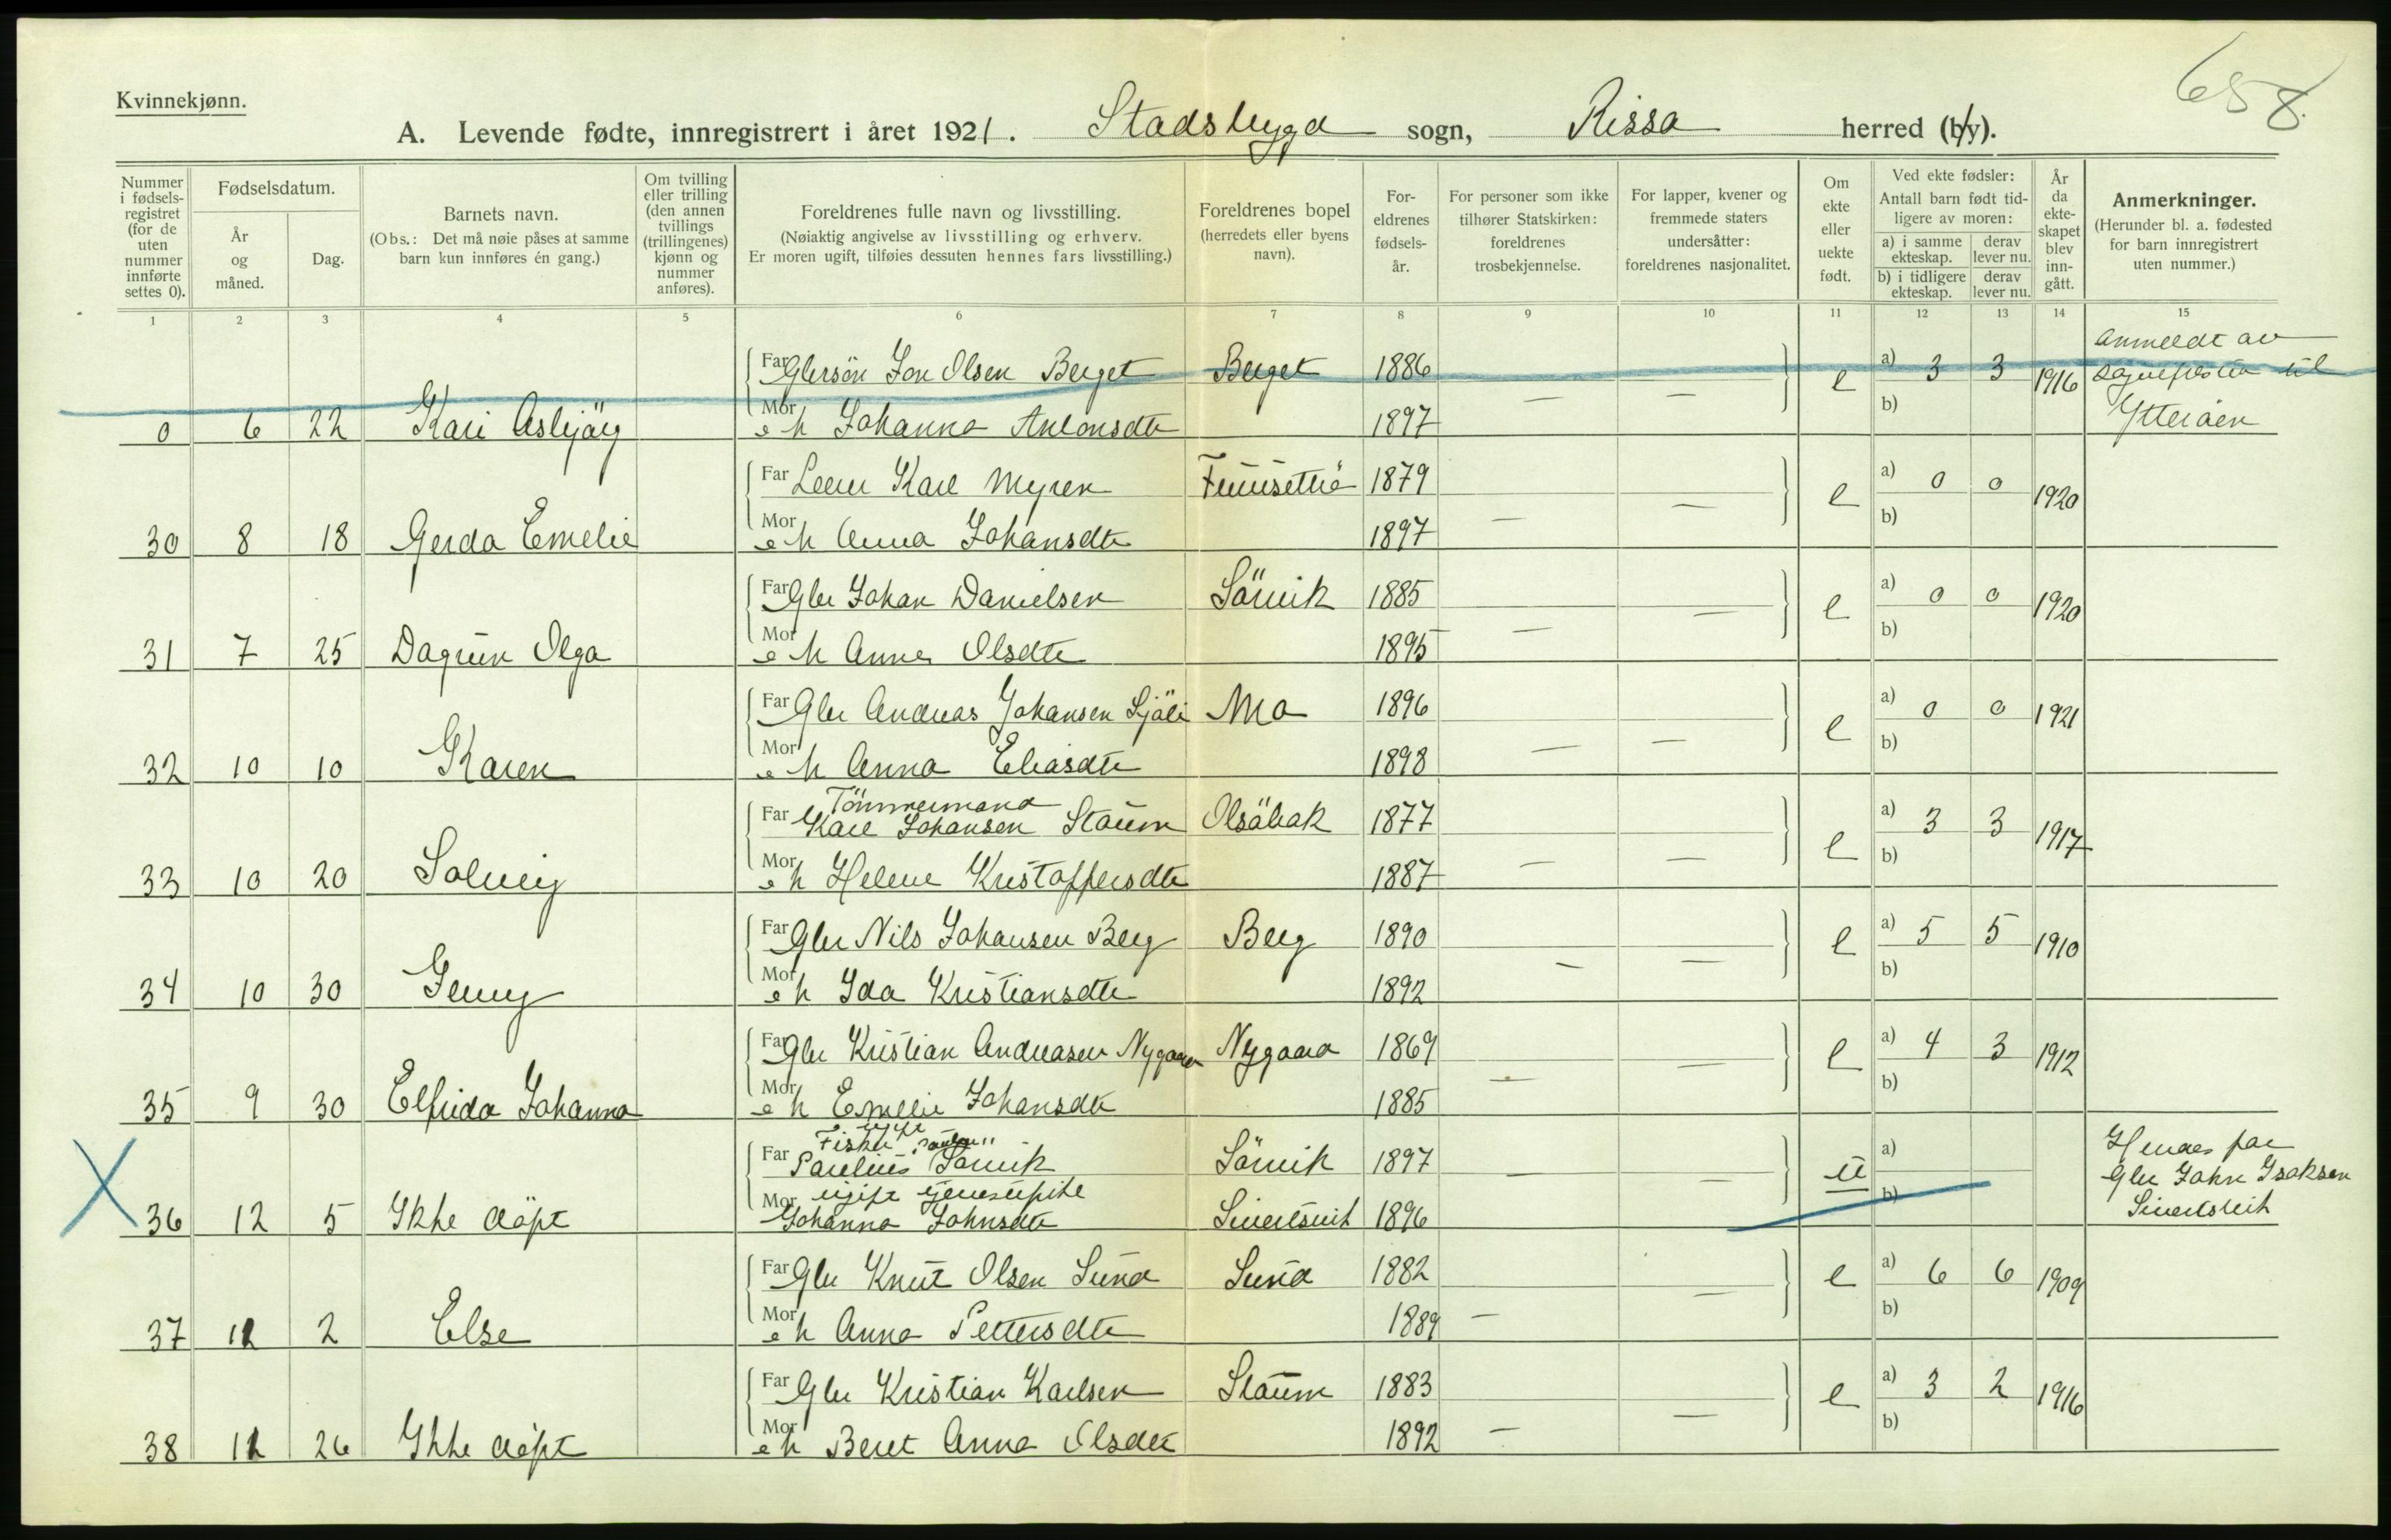 658.
Kvinnekjønn.
A. Levende fødte, innregistrert i året 1921. Stadsbygd sogn, Rissa herred (by).
Nummer i fødsels-registret (for de uten nummer innførte settes 0).
Fødselsdatum.
År og måned.
Dag.
Barnets navn.
(Obs.: Det må nøie påses at samme barn kun innføres én gang.)
Om tvilling eller trilling (den annen tvillings (trillingenes) kjønn og nummer anføres).
Foreldrenes fulle navn og livsstilling.
(Nøiaktig angivelse av livsstilling og erhverv.
Er moren ugift, tilføies dessuten hennes fars livsstilling.)
Foreldrenes bopel (herredets eller byens navn).
For-eldrenes fødsels-år.
For personer som ikke tilhører Statskirken: foreldrenes trosbekjennelse.
For lapper, kvener og fremmede staters undersåtter: foreldrenes nasjonalitet.
Om ekte eller uekte født.
Ved ekte fødsler: Antall barn født tid-ligere av moren:
a) i samme ekteskap. derav lever nu.
b) i tidligere ekteskap. derav lever nu.
År da ekte-skapet blev inn-gått.
Anmerkninger.
(Herunder bl. a. fødested for barn innregistrert uten nummer.)
1 2 3 4 5 6 7 8 9 10 11 12 13 14 15
Far Jon Olsen Berget Berget 1886 — — e a) 3 3 1916 anmeldt av
til
0 6 22 Kari Asbjörg Mor h Johanna Antonsdtr 1897 b) Ytteröen
Far Karl Myren 1879 — — e a) 0 0 1920
30 8 18 Gerda Emelie Mor h Anna Johansdtr 1897 b)
Far Gbr Johan Danielsen Sörvik 1885 — — e a) 0 0 1920
31 7 25 Dagrun Olga Mor h Anna Olsdtr 1895 b)
Far Gbr Andreas Johansen Mo 1896 — — e a) 0 0 1921
32 10 10 Karen Mor h Anna Eliasdtr 1898 b)
Tömmermand
Far Karl Johansen Staum Olsöbak 1877 — — e a) 3 3 1917
33 10 20 Solveig Mor h Helene Kristoffersdtr 1887 b)
Far Gbr Nils Johansen Berg Berg 1890 — — e a) 5 5 1910
34 10 30 Jenny Mor h Ida Kristiansdtr 1892 b)
Far Gbr Kristian Andreasen Nygaard Nygaard 1869 — — e a) 4 3 1912
35 9 30 Elfrida Johanna Mor h Emelie Johansdtr 1885 b)
ugift
Fisker
Far Paulius Sörvik Sörvik 1897 — — u a) Hendes far
ugift Gbr John Isaksen
36 12 5 Ikke döpt Mor Johanna Johnsdtr Sivertsvik 1896 b) Sivertsvik
Far Gbr Knut Olsen Sund Sund 1882 — — e a) 6 6 1909
37 12 2 Else Mor h Anna Pettersdtr 1889 b)
Far Gbr Kristian Karlsen Staum 1883 — — e a) 3 2 1916
38 12 26 Ikke döpt Mor h Beret Anna Olsdtr 1892 b)